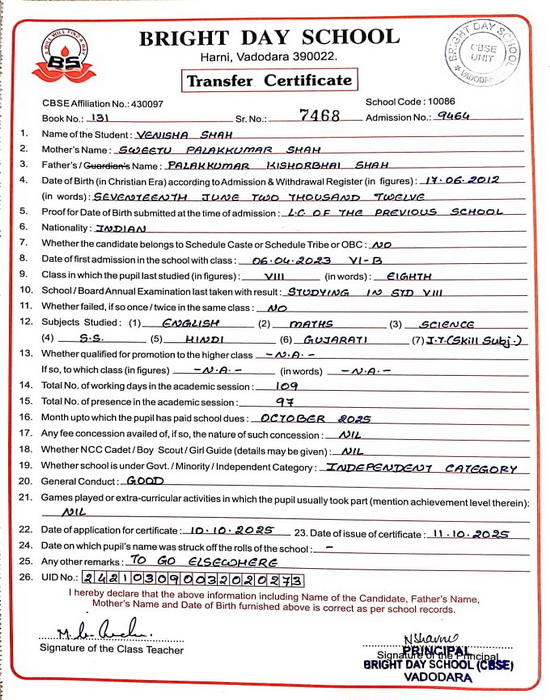 BRIGHT DAY SCHOOL
Harni, Vadodara 390022.
Transfer Certificate
BRIGHT DAY SCHOOL
CBSE UNIT
VADODARA
BS
CBSE Affiliation No.: 430097 School Code : 10086
Book No.: 131 Sr. No.: 7468 Admission No.: 9464
1. Name of the Student : VENISHA SHAH
2. Mother's Name : SWEETU PALAKKUMAR SHAH
3. Father's / Guardian's Name : PALAKKUMAR KISHORBHAI SHAH
4. Date of Birth (in Christian Era) according to Admission & Withdrawal Register (in figures) : 17.06.2012
(in words) : SEVENTEENTH JUNE TWO THOUSAND TWELVE
5. Proof for Date of Birth submitted at the time of admission : L.C OF THE PREVIOUS SCHOOL
6. Nationality : INDIAN
7. Whether the candidate belongs to Schedule Caste or Schedule Tribe or OBC : NO
8. Date of first admission in the school with class : 06.04.2023 VI-B
9. Class in which the pupil last studied (in figures) : VIII (in words) : EIGHTH
10. School / Board Annual Examination last taken with result : STUDYING IN STD VIII
11. Whether failed, if so once / twice in the same class : NO
12. Subjects Studied : (1) ENGLISH (2) MATHS (3) SCIENCE
(4) S.S. (5) HINDI (6) GUJARATI (7) I.T.(Skill Subj.)
13. Whether qualified for promotion to the higher class -N.A.-
If so, to which class (in figures) -N.A.- (in words) -N.A.-
14. Total No. of working days in the academic session : 109
15. Total No. of presence in the academic session : 97
16. Month upto which the pupil has paid school dues : OCTOBER 2025
17. Any fee concession availed of, if so, the nature of such concession : NIL
18. Whether NCC Cadet / Boy Scout / Girl Guide (details may be given) : NIL
19. Whether school is under Govt. / Minority / Independent Category : INDEPENDENT CATEGORY
20. General Conduct : GOOD
21. Games played or extra-curricular activities in which the pupil usually took part (mention achievement level therein) :
NIL
22. Date of application for certificate : 10.10.2025 23. Date of issue of certificate : 11.10.2025
24. Date on which pupil's name was struck off the rolls of the school : -
25. Any other remarks : TO GO ELSEWHERE
26. UID No.: 242103090032020273
I hereby declare that the above information including Name of the Candidate, Father's Name,
Mother's Name and Date of Birth furnished above is correct as per school records.
Signature of the Class Teacher Signature of the Principal
PRINCIPAL
BRIGHT DAY SCHOOL (CBSE)
VADODARA